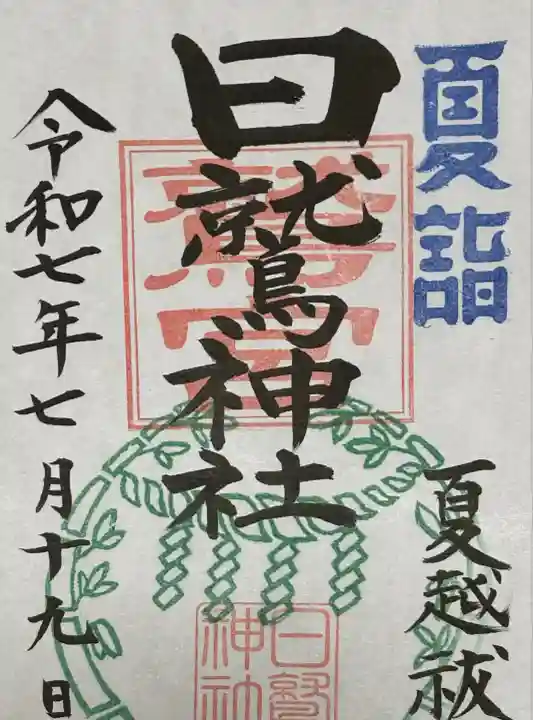 夏詣
夏越祓
日鷲神社
令和七年七月十九日
日鷲神社